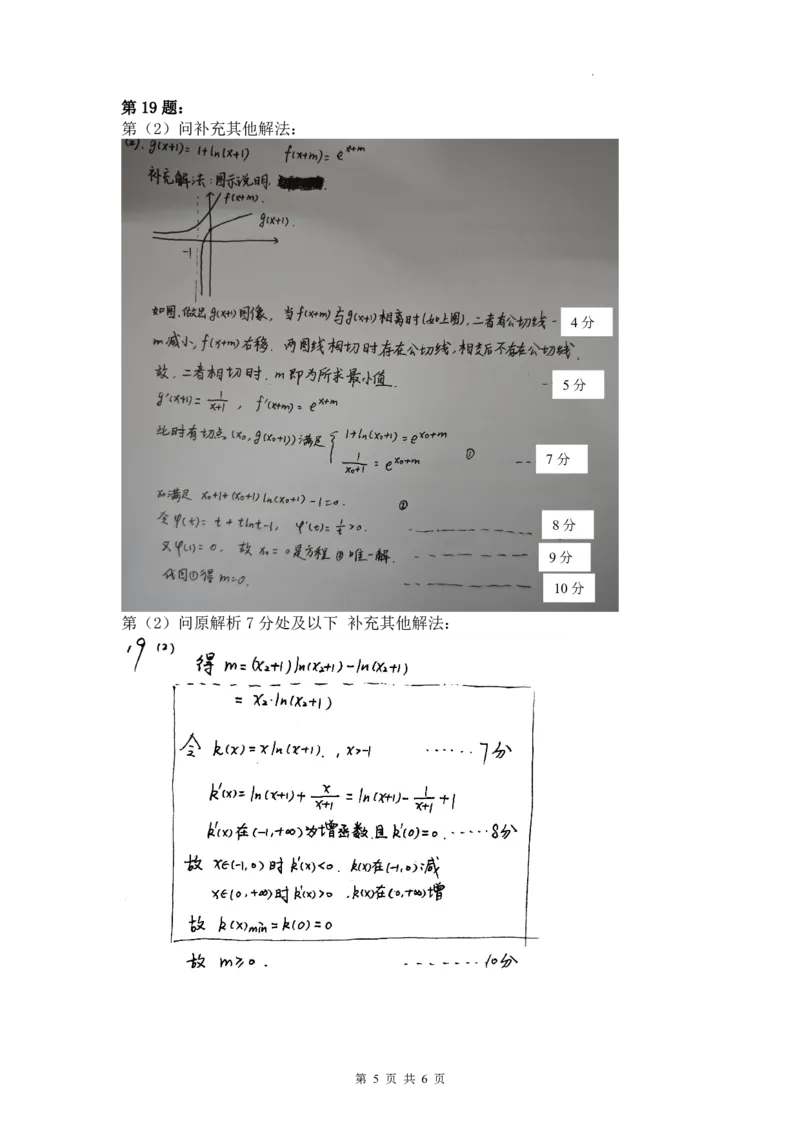 第 19 题：
第（2）问补充其他解法：
(2). g(x+1)= 1+ln(x+1)  f(x+m)= e^{x+m}
补充解法：图示说明，
f(x+m).
g(x+1).
-1
如图，做出g(x+1)图像，当f(x+m)与g(x+1)相离时(如上图)，二者有公切线 4 分
m减小，f(x+m)右移．两图线相切时存在公切线，相交后不存在公切线．
故．二者相切时．m即为所求最小值． 5 分
g'(x+1)= \frac{1}{x+1} ， f'(x+m)= e^{x+m}
此时有切点(x₀, g(x₀+1))满足 { 1+ln(x₀+1)=e^{x₀+m}
\frac{1}{x₀+1} = e^{x₀+m} ① 7 分
x₀满足 x₀+1+(x₀+1)ln(x₀+1)-1=0. ②
令φ(t)= t+tlnt-1, φ'(t)= \frac{1}{t}>0. 8 分
又φ(1)=0． 故x₀=0是方程②唯一解． 9 分
代回①得m=0. 10 分
第（2）问原解析 7 分处及以下 补充其他解法：
19 (2)
得 m=(x₂+1)ln(x₂+1)-ln(x₂+1)
= x₂·ln(x₂+1)
令 k(x)=xln(x+1). , x>-1 ······7分
k'(x)=ln(x+1)+\frac{x}{x+1} = ln(x+1)-\frac{1}{x+1}+1
k'(x)在(-1,+∞)为增函数，且k'(0)=0．·····8分
故 x∈(-1,0)时k'(x)<0．k(x)在(-1,0)减
x∈(0,+∞)时k'(x)>0 ．k(x)在(0,+∞)增
故 k(x)min=k(0)=0
故 m≥0． -------10分
第 5 页 共 6 页